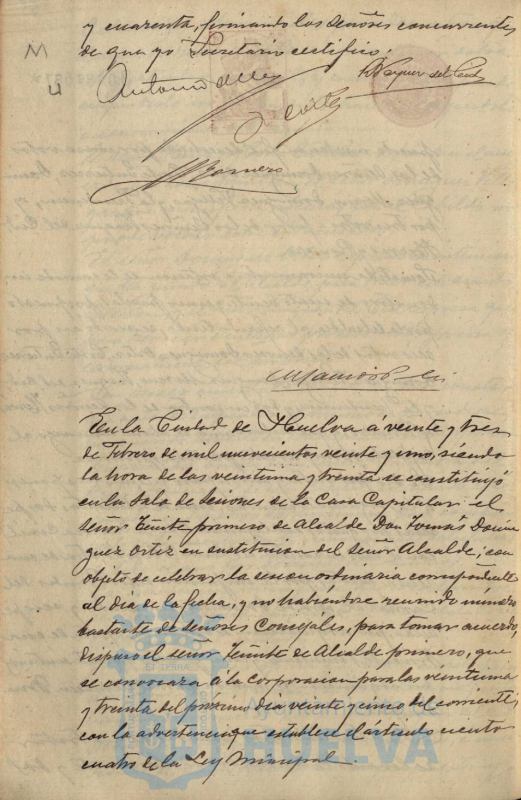 y cuarenta, firmando los señores concurrentes
de que yo Secretario certifico.
M
u
Antonio
J. Cortés
Romero
En la Ciudad de Huelva á veinte y tres
de Febrero de mil nuevecientos veinte y uno, siendo
la hora de las veintiuna y treinta se constituyó
en la Sala de Sesiones de la Casa Capitular el
señor Teniente primero de Alcalde Don Tomás Domin
guez Ortiz en sustitucion del señor Alcalde; con
objeto de celebrar la sesion ordinaria correspondiente
al dia de la fecha, y no habiéndose reunido número
bastante de señores Concejales, para tomar acuerdo,
dispuso el señor Teniente de Alcalde primero, que
se convocara á la corporacion para las veintiuna
y treinta del próximo dia veinte y cinco del corriente;
con la advertencia que establece el artículo ciento
cuatro de la Ley Municipal.
HUELVA